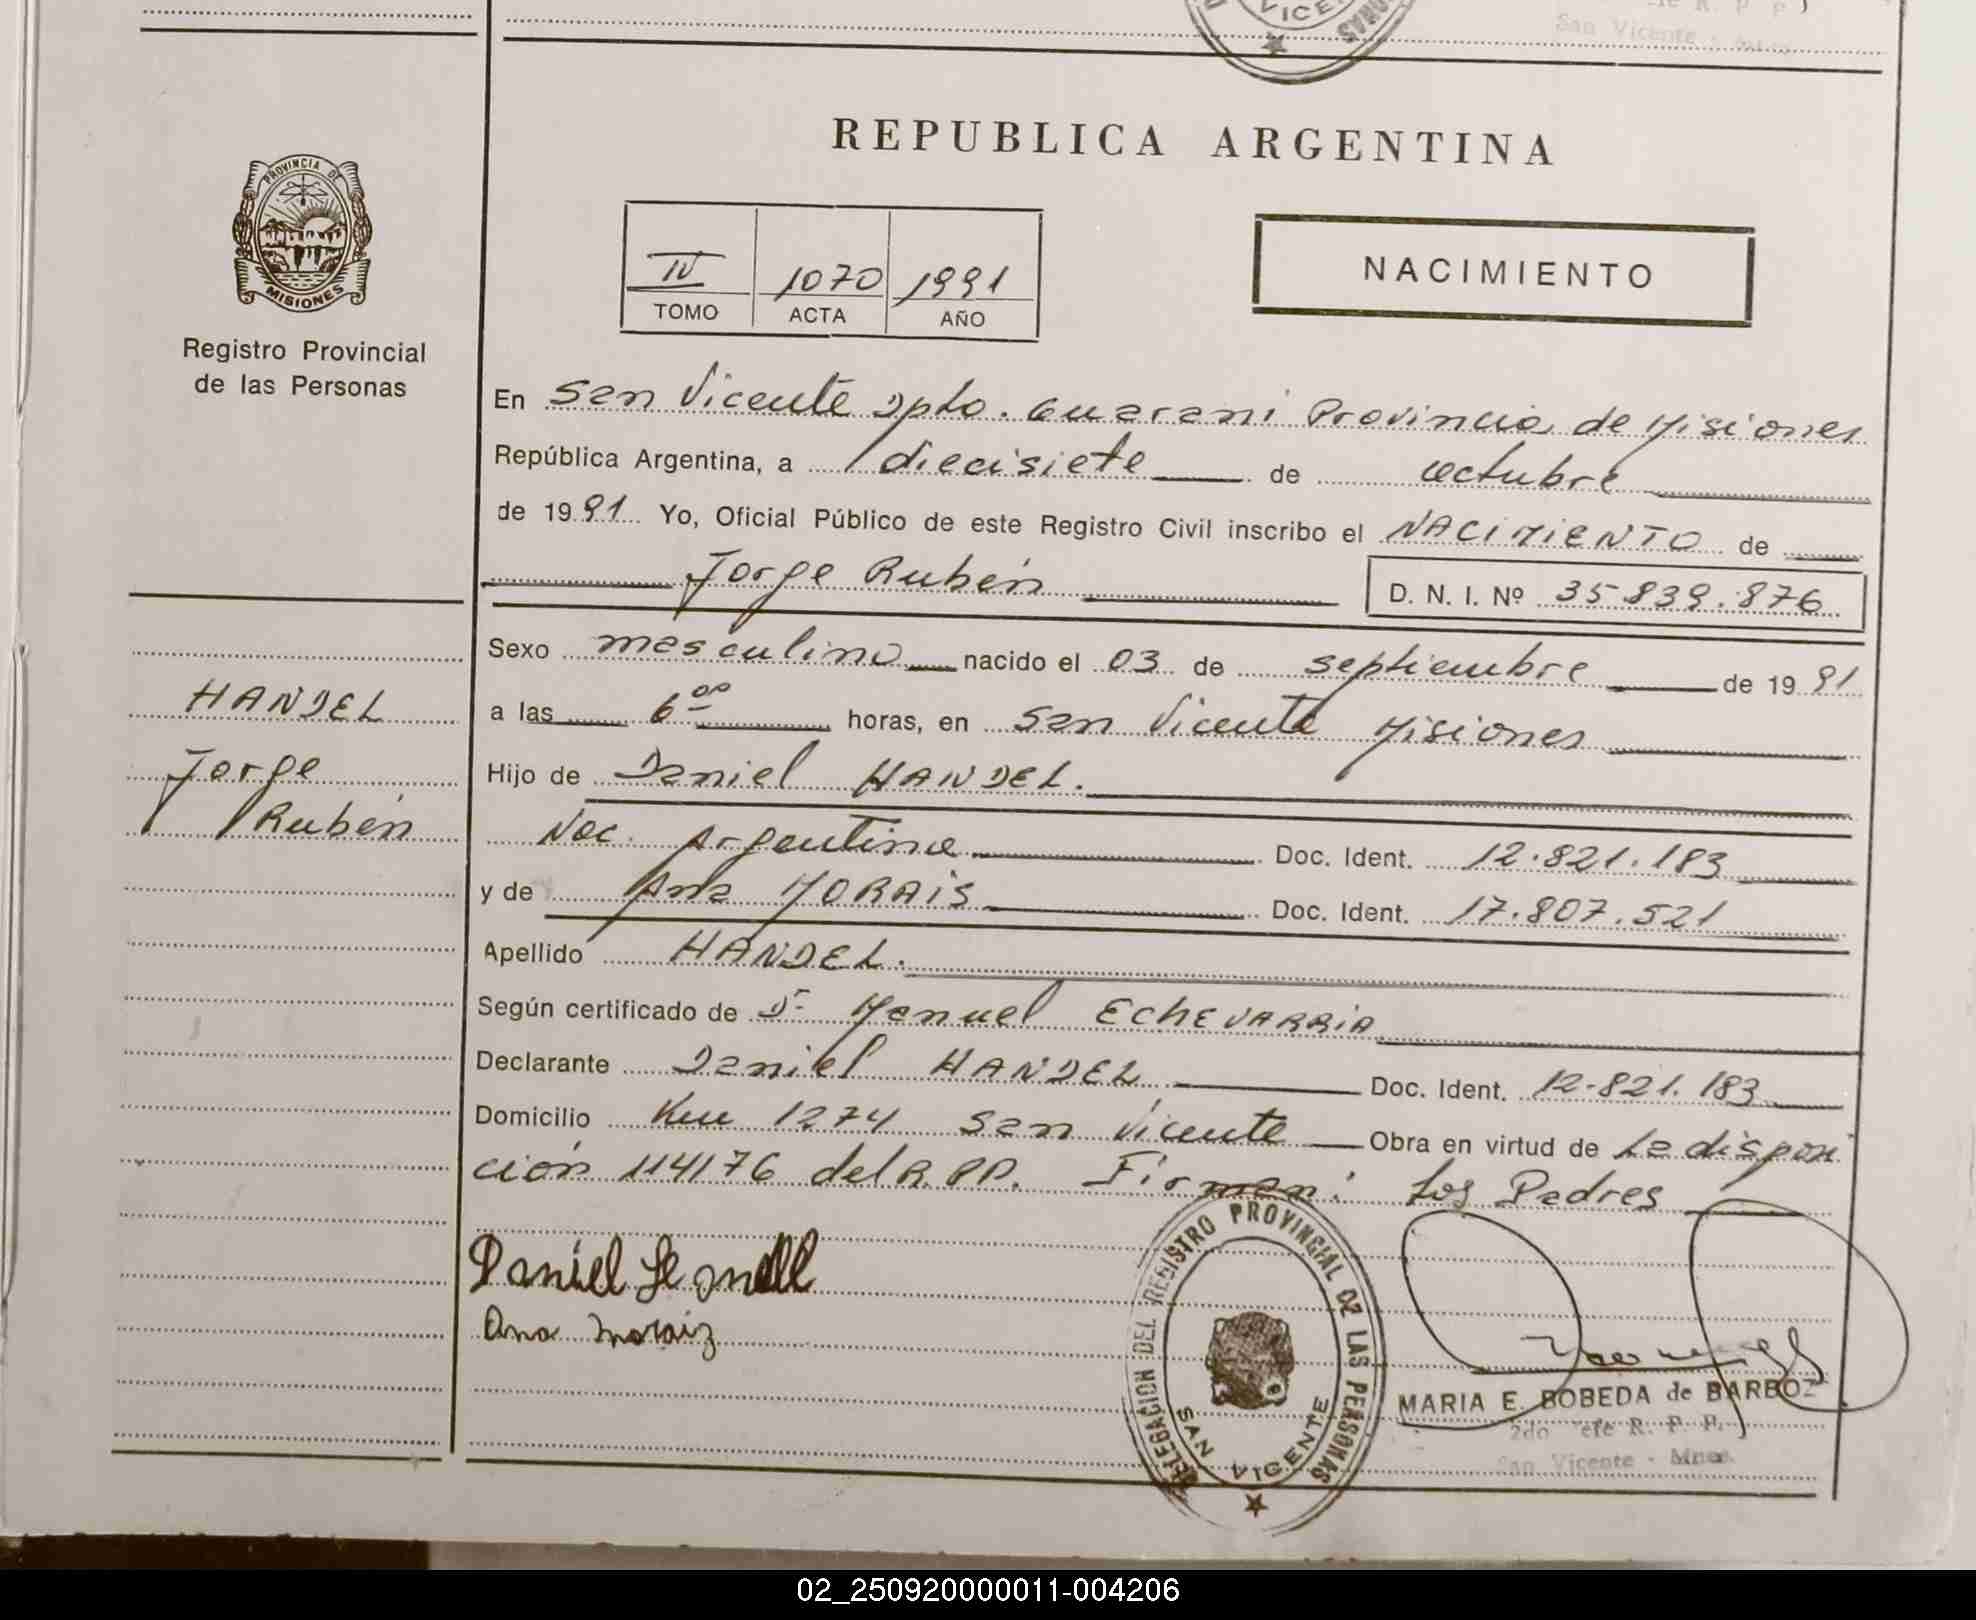 VICENTE
San Vicente - Mnes.
REPUBLICA ARGENTINA
PROVINCIA DE
MISIONES
Registro Provincial
de las Personas
IV 1070 1991
TOMO ACTA AÑO
NACIMIENTO
En San Vicente Dpto. Guarani Provincia de Misiones
República Argentina, a diecisiete de octubre
de 1991 Yo, Oficial Público de este Registro Civil inscribo el NACIMIENTO de
Jorge Rubén D. N. I. Nº 35.839.876
Sexo masculino nacido el 03 de septiembre de 1991
HANDEL
Jorge
Rubén
a las 6 00 horas, en San Vicente Misiones
Hijo de Daniel HANDEL.
Nac. Argentina Doc. Ident. 12.821.183
y de Ana MORAIS Doc. Ident. 17.807.521
Apellido HANDEL.
Según certificado de Dr Manuel ECHEVARRIA
Declarante Daniel HANDEL Doc. Ident. 12.821.183
Domicilio Km 1274 San Vicente Obra en virtud de La disposi
ción 114/76 del R.PP. Firman: Los Padres
Daniel
Ana Moraiz
DELEGACION DEL REGISTRO PROVINCIAL DE LAS PERSONAS
SAN VICENTE
MARIA E. BOBEDA de BARBOZ
2do Jefe R. P. P.
San Vicente - Mnes.
02_250920000011-004206